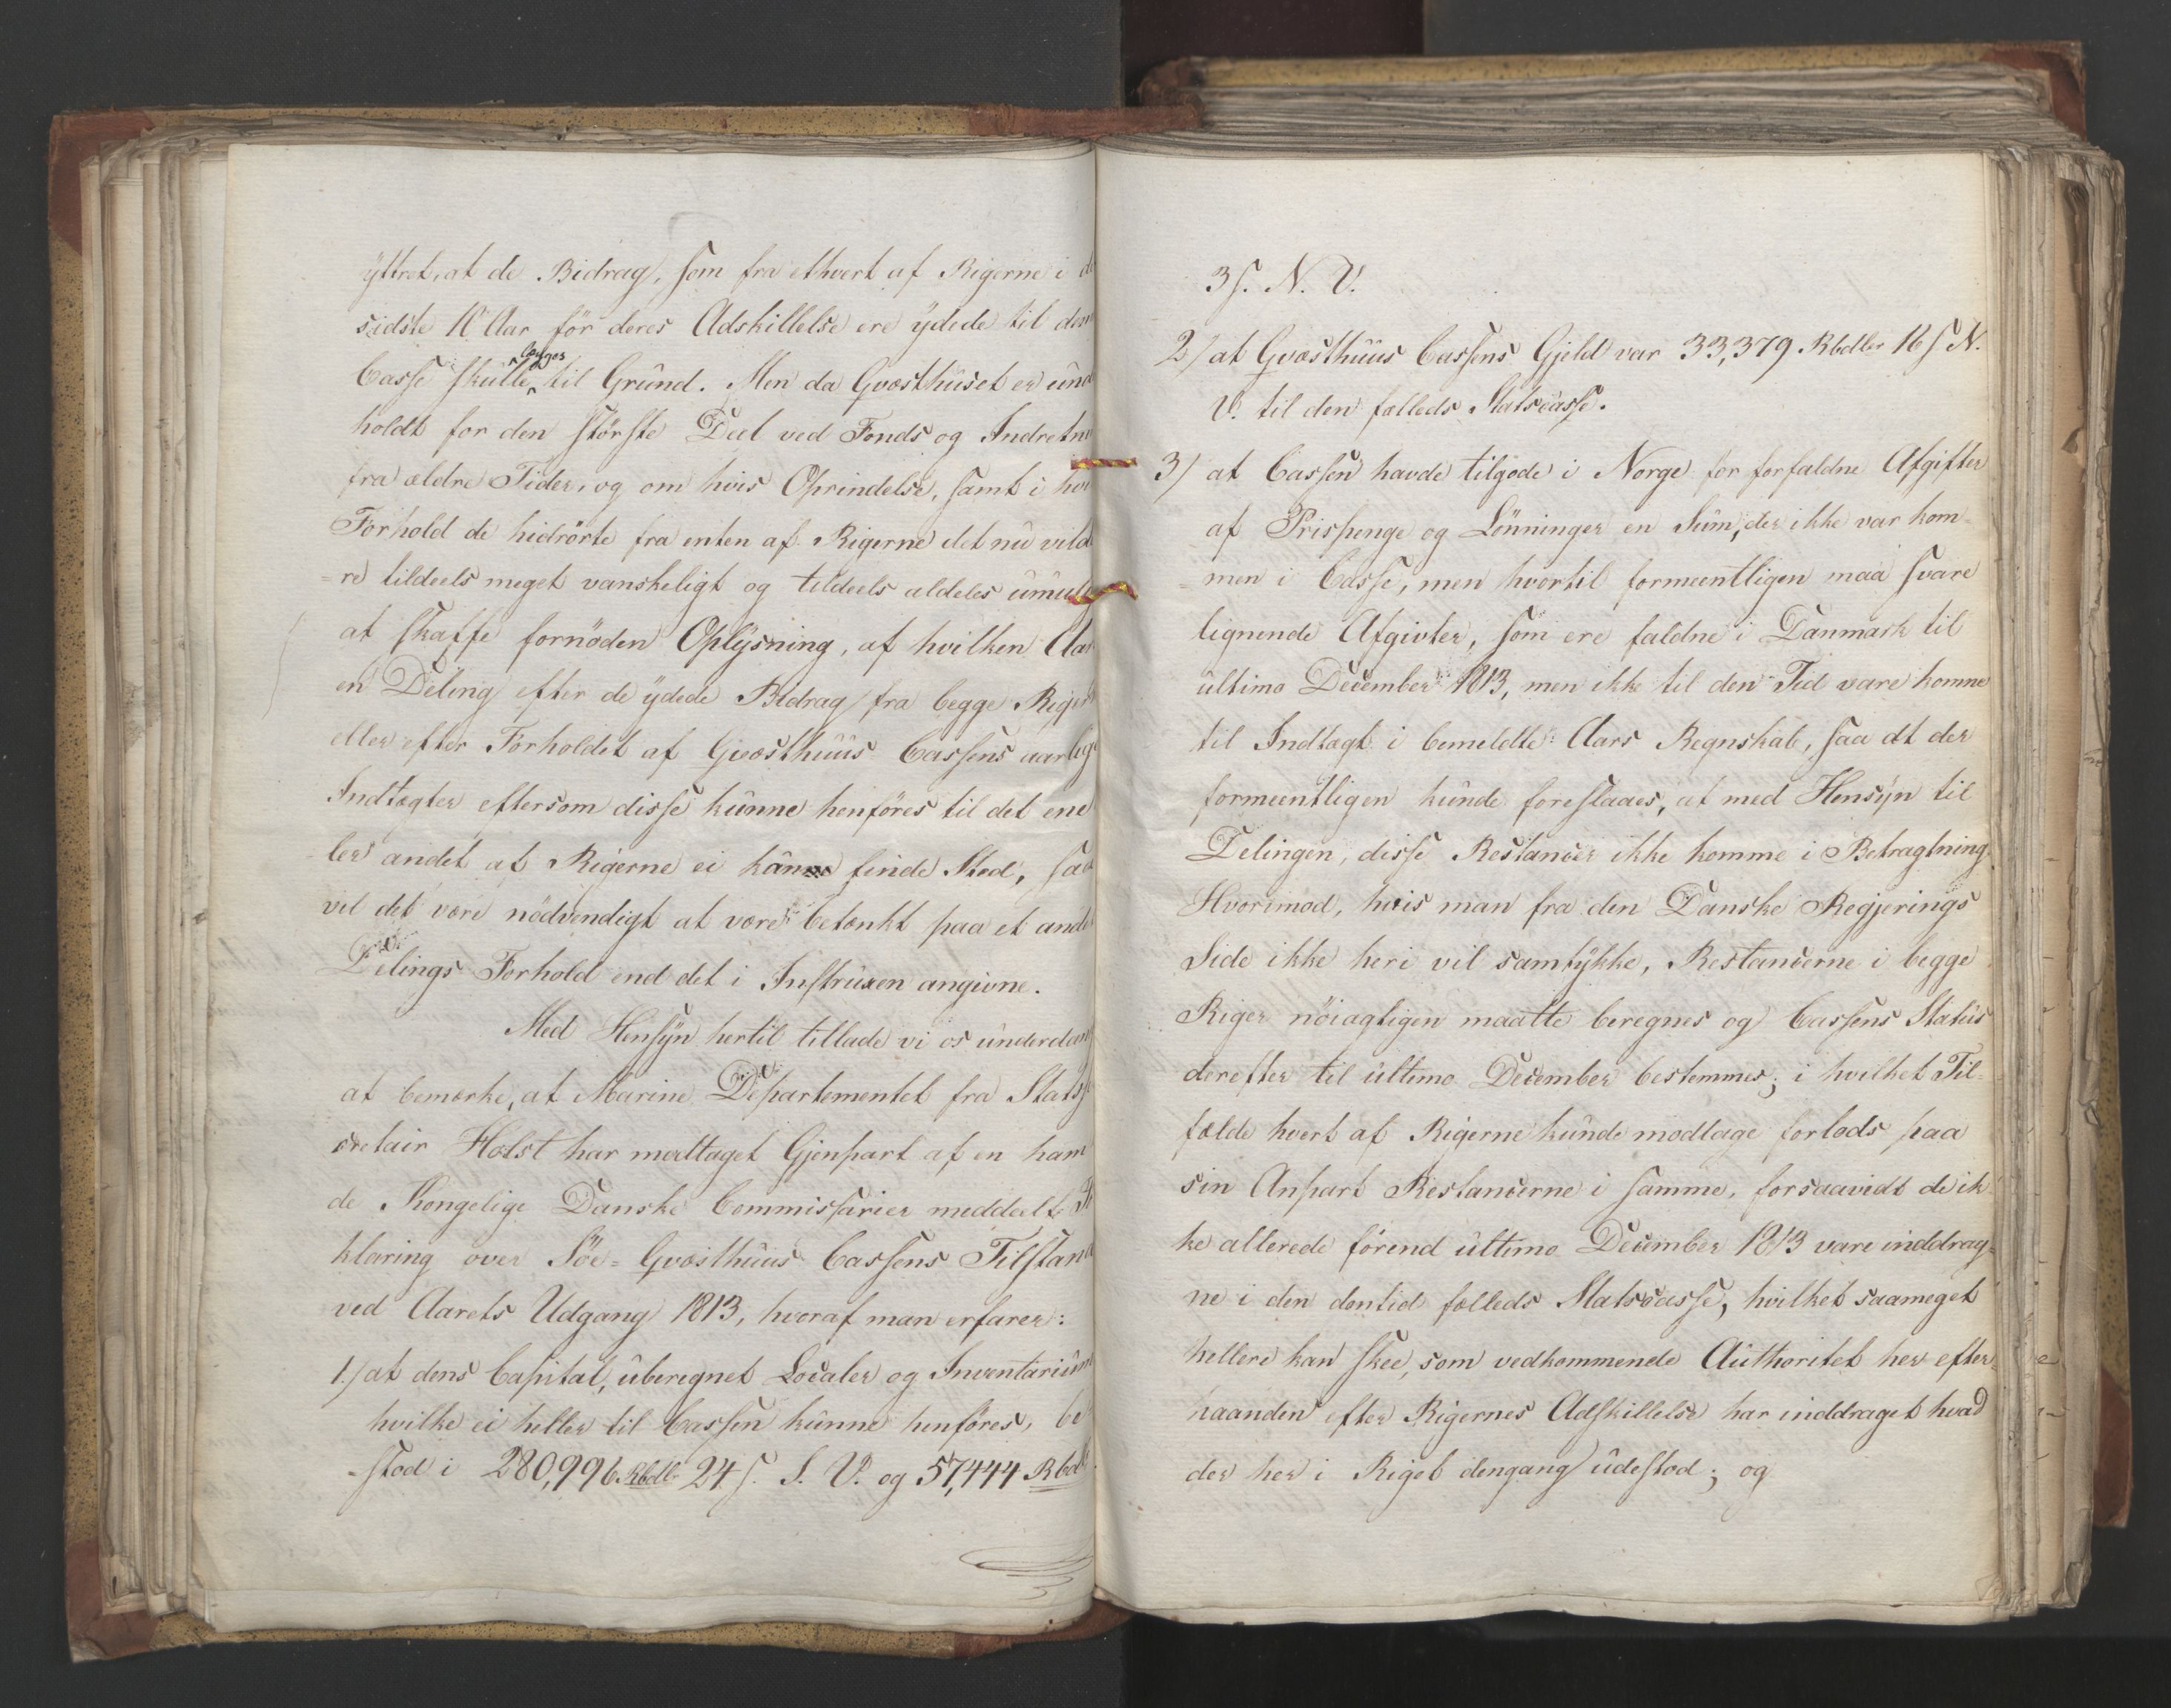 ÿttret, at de Bidrag, som fra ethvert af Rigerne i de
sidste 10 Aar för deres Adskillelse ere ÿdede til den
Casse skulle lægges til Grund. Men da Qvæsthuset er und
holdt for den störste Deel ved Fonds og Indretn
fra ældre Tider, og om hvis Oprindelse, samt i hvi
Forhold de hidrörte fra enten af Rigerne det nu vild
=re tildeels meget vanskeligt og tildeels aldeles umuli
at skaffe fornöden Oplÿsning, af hvilken Aar
en Deling efter de ÿdede Bidrag fra begge Riger
eller efter Forholdet af Qvæsthuus Cassens aarlig
Indtægter eftersom disse kunne henföres til det ene
ler andet af Rigerne ei kan finde Sted, saa
vil det være nödvendigt at være betænkt paa et ande
Delings Forhold end det i Instruxen angivne.
Med Hensÿn hertil tillade vi os underdan
at bemærke, at Marine Departementet fra Statsse
cretair Holst har modtaget Gjenpart af en ham
de Kongelige Danske Commissarier meddeelt Fo
klaring over Söe=Qvæsthuus Cassens Tilstand
ved Aarets Udgang 1813, hvoraf man erfarer:
1.) at dens Capital, uberegnet Localer og Inventarium
hvilke ei heller til Cassen kunne henföres, be
=stod i 280,996 Rbdlr 24 s. S. V. og 57,444 Rbdlr
3 s. N. V.
2) at Qvæsthuus Cassens Gjeld var 33,379 Rbdlr 16 s N.
V. til den fælleds Statscasse.
3) at Cassen havde tilgode i Norge for forfaldne Afgifter
af Prispenge og Lönninger en Sum, der ikke var kom=
=men i Casse, men hvortil formeentligen maa svare
lignende Afgivter, som ere faldne i Danmark til
ultimo December 1813, men ikke til den Tid vare komne
til Indtægt i bemeldte Aars Regnskab, saa at der
formeentligen kunde foreslaaes, at med Hensÿn til
Delingen, disse Restancer ikke komme i Betragtning.
Hvorimod, hvis man fra den Danske Regjerings
Side ikke heri vil samtÿkke, Restancerne i begge
Riger nöiagtigen maatte beregnes og Cassens Status
derefter til ultimo December bestemmes; i hvilket Til=
fælde hvert af Rigerne kunde modtage forlods paa
sin Anpart Restancerne i samme, forsaavidt de ik
ke allerede förend ultimo December 1813 vare inddrag=
ne i den dentid fælleds Statscasse, hvilket saameget
hellere kan skee, som vedkommende Authoritet her efter=
haanden efter Rigernes Adskillelse har inddraget hvad
der her i Riget dengang udestod; og